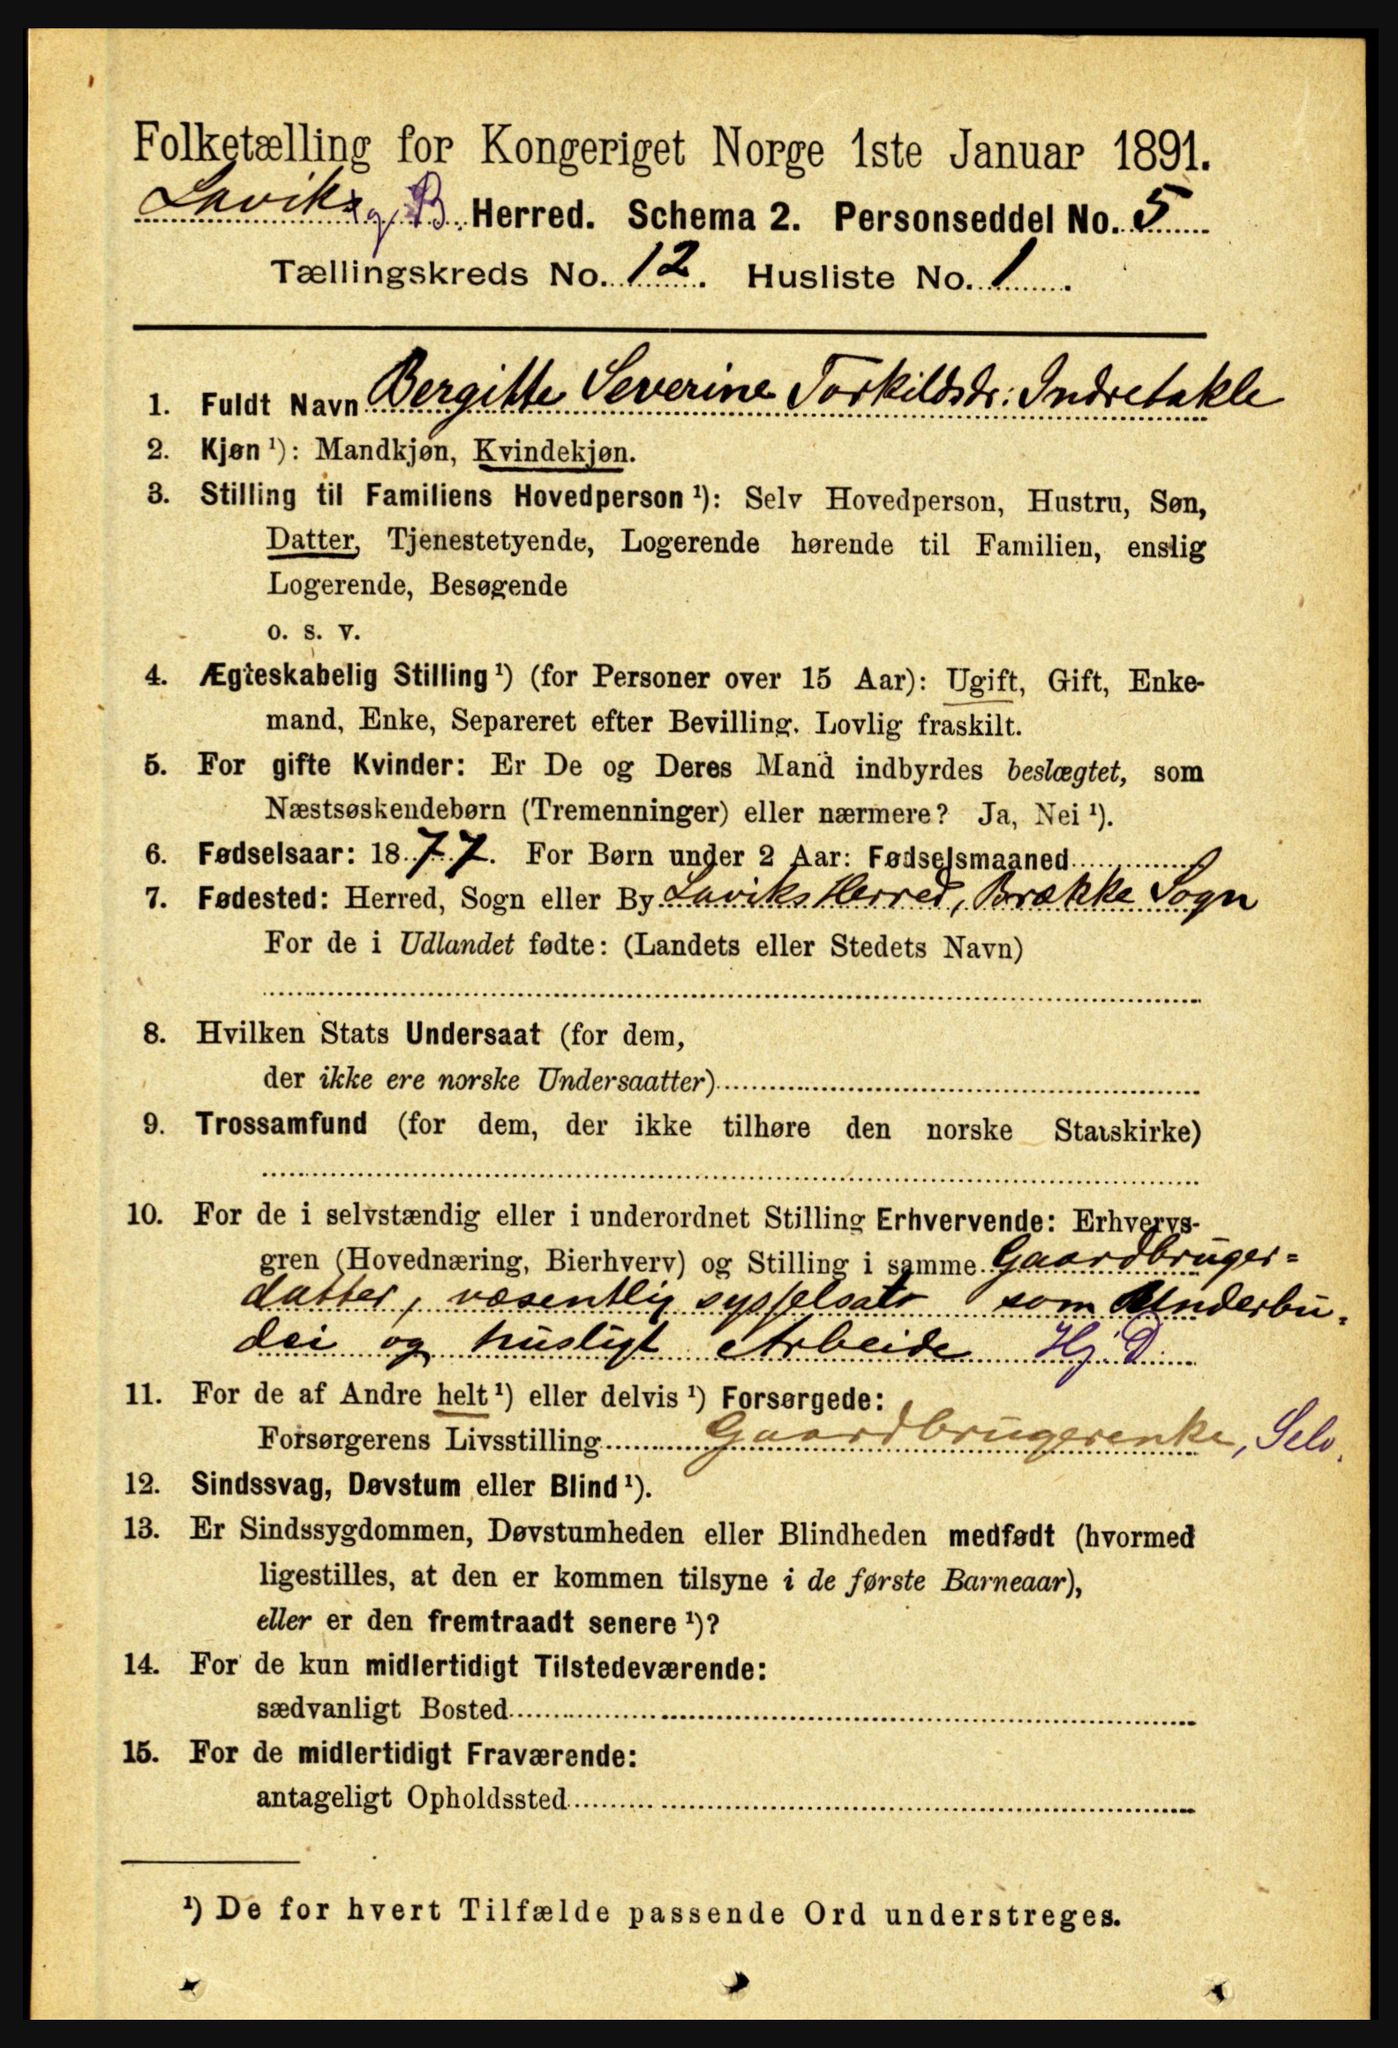 Folketælling for Kongeriget Norge 1ste Januar 1891.
Laviks og B. Herred. Schema 2. Personseddel No. 5
Tællingskreds No. 12. Husliste No. 1.
1. Fuldt Navn Bergitte Severine Torkildsdr. Indretakle
2. Kjøn ¹): Mandkjøn, Kvindekjøn.
3. Stilling til Familiens Hovedperson ¹): Selv Hovedperson, Hustru, Søn,
Datter, Tjenestetyende, Logerende hørende til Familien, enslig
Logerende, Besøgende
o. s. v.
4. Ægteskabelig Stilling ¹) (for Personer over 15 Aar): Ugift, Gift, Enke-
mand, Enke, Separeret efter Bevilling. Lovlig fraskilt.
5. For gifte Kvinder: Er De og Deres Mand indbyrdes beslægtet, som
Næstsøskendebørn (Tremenninger) eller nærmere? Ja, Nei ¹).
6. Fødselsaar: 1877. For Børn under 2 Aar: Fødselsmaaned
7. Fødested: Herred, Sogn eller By Laviks Herred, Brække Sogn
For de i Udlandet fødte: (Landets eller Stedets Navn)
8. Hvilken Stats Undersaat (for dem,
der ikke ere norske Undersaatter)
9. Trossamfund (for dem, der ikke tilhøre den norske Statskirke)
10. For de i selvstændig eller i underordnet Stilling Erhvervende: Erhvervs-
gren (Hovednæring, Bierhverv) og Stilling i samme Gaardbruger=
datter, væsentlig sysselsat som Underbu-
dei og husligt Arbeide Hj. D.
11. For de af Andre helt ¹) eller delvis ¹) Forsørgede:
Forsørgerens Livsstilling Gaardbrugerenke, Selv.
12. Sindssvag, Døvstum eller Blind ¹).
13. Er Sindssygdommen, Døvstumheden eller Blindheden medfødt (hvormed
ligestilles, at den er kommen tilsyne i de første Barneaar),
eller er den fremtraadt senere ¹)?
14. For de kun midlertidigt Tilstedeværende:
sædvanligt Bosted
15. For de midlertidigt Fraværende:
antageligt Opholdssted
¹) De for hvert Tilfælde passende Ord understreges.